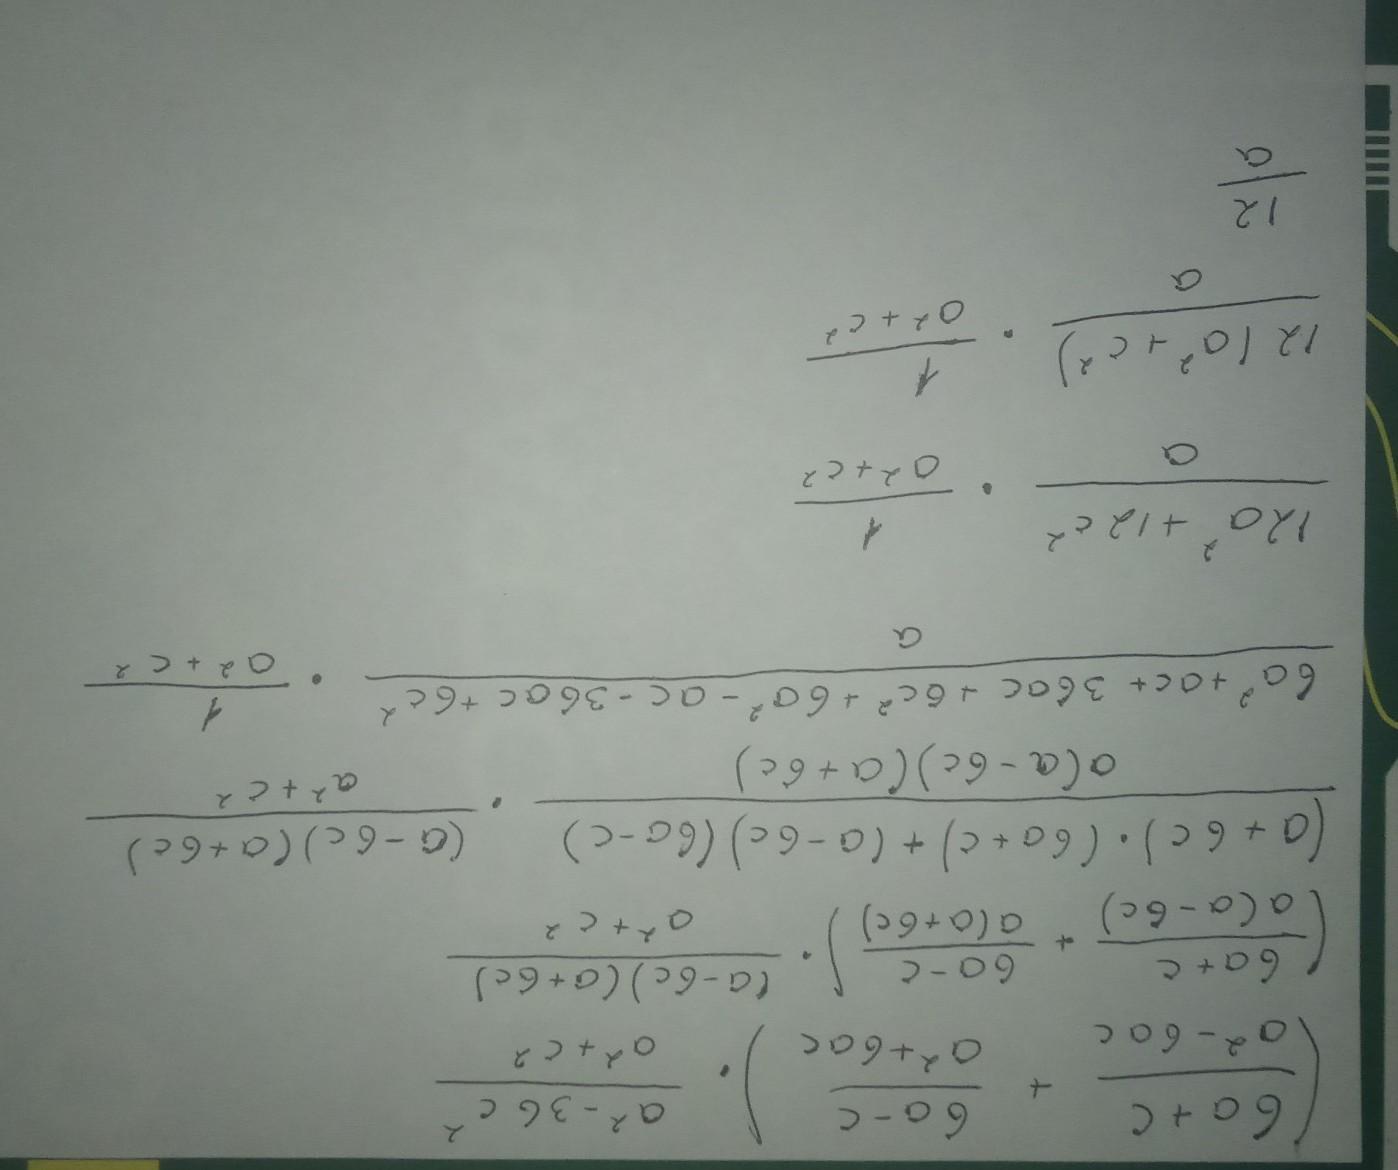 (6a+c / a²-6ac + 6a-c / a²+6ac) · a²-36c² / a²+c²
(6a+c / a(a-6c) + 6a-c / a(a+6c)) · (a-6c)(a+6c) / a²+c²
(a+6c)·(6a+c)+(a-6c)(6a-c) / a(a-6c)(a+6c) · (a-6c)(a+6c) / a²+c²
6a²+ac+36ac+6c²+6a²-ac-36ac+6c² / a · 1 / a²+c²
12a²+12c² / a · 1 / a²+c²
12(a²+c²) / a · 1 / a²+c²
12 / a